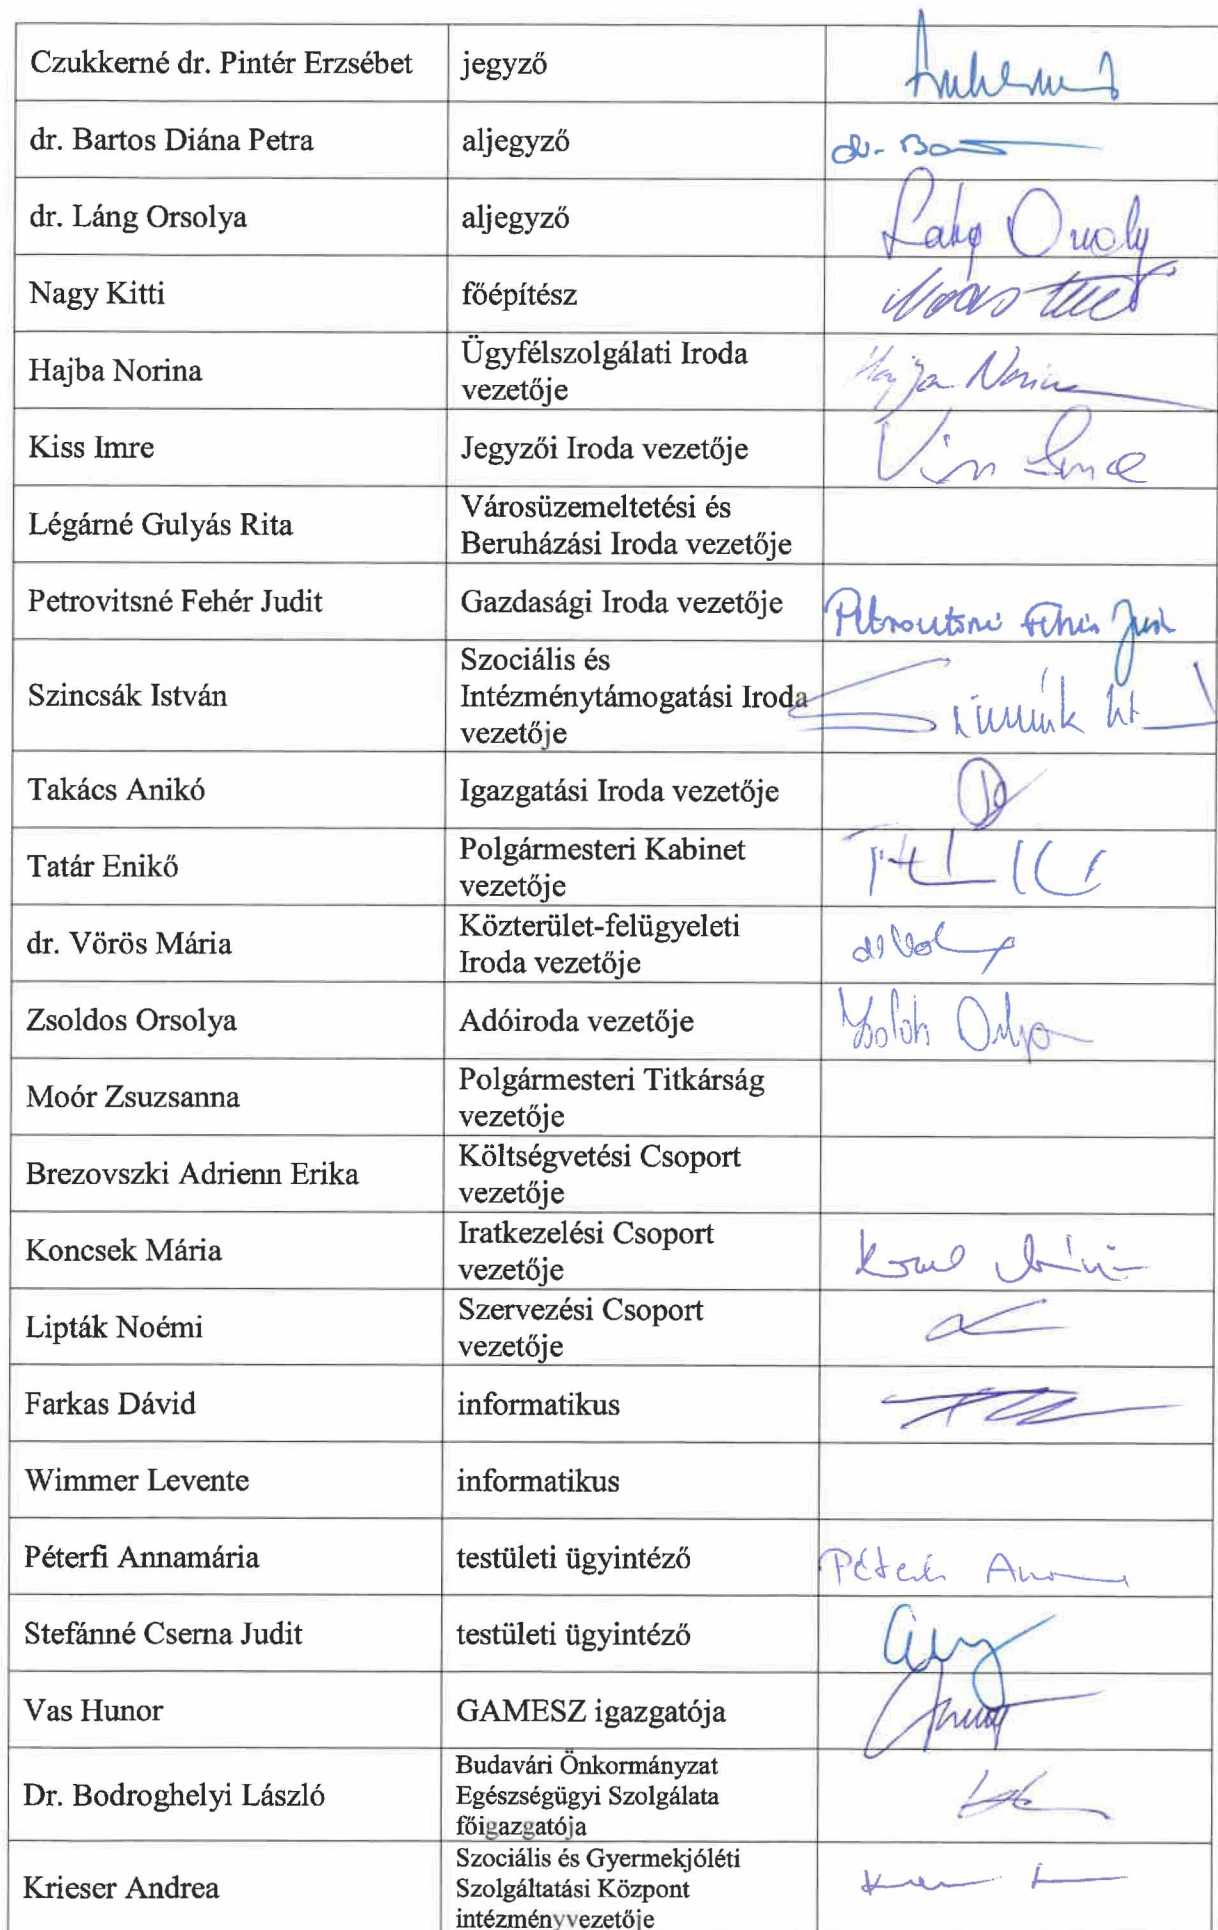 Czukkerné dr. Pintér Erzsébet jegyző
dr. Bartos Diána Petra aljegyző
dr. Láng Orsolya aljegyző
Nagy Kitti főépítész
Hajba Norina Ügyfélszolgálati Iroda
vezetője
Kiss Imre Jegyzői Iroda vezetője
Légárné Gulyás Rita Városüzemeltetési és
Beruházási Iroda vezetője
Petrovitsné Fehér Judit Gazdasági Iroda vezetője
Szincsák István Szociális és
Intézménytámogatási Iroda
vezetője
Takács Anikó Igazgatási Iroda vezetője
Tatár Enikő Polgármesteri Kabinet
vezetője
dr. Vörös Mária Közterület-felügyeleti
Iroda vezetője
Zsoldos Orsolya Adóiroda vezetője
Moór Zsuzsanna Polgármesteri Titkárság
vezetője
Brezovszki Adrienn Erika Költségvetési Csoport
vezetője
Koncsek Mária Iratkezelési Csoport
vezetője
Lipták Noémi Szervezési Csoport
vezetője
Farkas Dávid informatikus
Wimmer Levente informatikus
Péterfi Annamária testületi ügyintéző
Stefánné Cserna Judit testületi ügyintéző
Vas Hunor GAMESZ igazgatója
Dr. Bodroghelyi László Budavári Önkormányzat
Egészségügyi Szolgálata
főigazgatója
Krieser Andrea Szociális és Gyermekjóléti
Szolgáltatási Központ
intézményvezetője